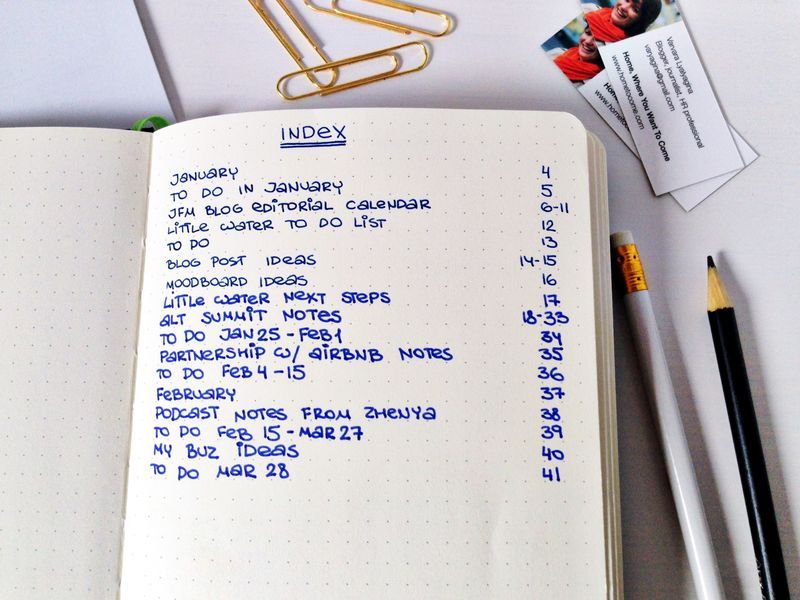 INDEX
JANUARY 4
TO DO IN JANUARY 5
JFM BLOG EDITORIAL CALENDAR 6-11
LITTLE WATER TO DO LIST 12
TO DO 13
BLOG POST IDEAS 14-15
MOODBOARD IDEAS 16
LITTLE WATER NEXT STEPS 17
ALT SUMMIT NOTES 18-33
TO DO JAN 25 - FEB 1 34
PARTNERSHIP W/ AIRBNB NOTES 35
TO DO FEB 4-15 36
FEBRUARY 37
PODCAST NOTES FROM ZHENYA 38
TO DO FEB 15 - MAR 27 39
MY BUZ IDEAS 40
TO DO MAR 28 41
Varvara Lyalyagina
Blogger, journalist, HR professional
varyagina@gmail.com
Home, Where You Want To Come
www.hometocome.com